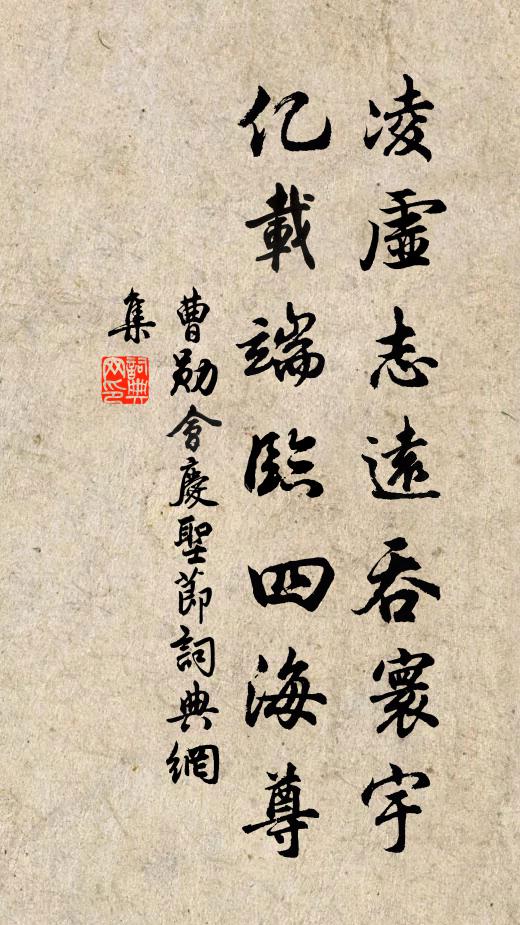 凌虛志遠吞寰宇
亿載端臨四海尊
曹勛會慶聖節詞典網
集
詞典
网印